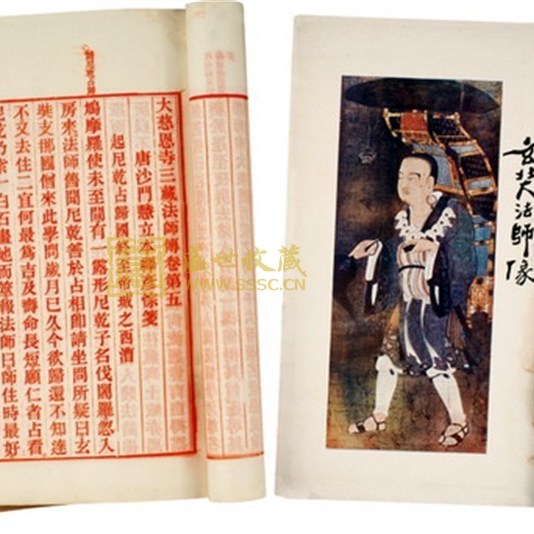 大慈恩寺三藏法師傳卷第五
唐沙門慧立本釋彥悰箋
起尼乾占歸國終至帝城之西漕
鳩摩羅使未至間有一露形尼乾子名伐闍羅忽入
房來法師舊聞尼乾善於占相即請坐問所疑曰玄
奘支那國僧來此學問歲月已久今欲歸還不知達
不又去住二宜何最爲吉及壽命長短願仁者占看
尼乾乃索一白石畫地而筮報法師曰師住時最好
玄奘法師像
盛世收藏
WWW.SSSC.CN